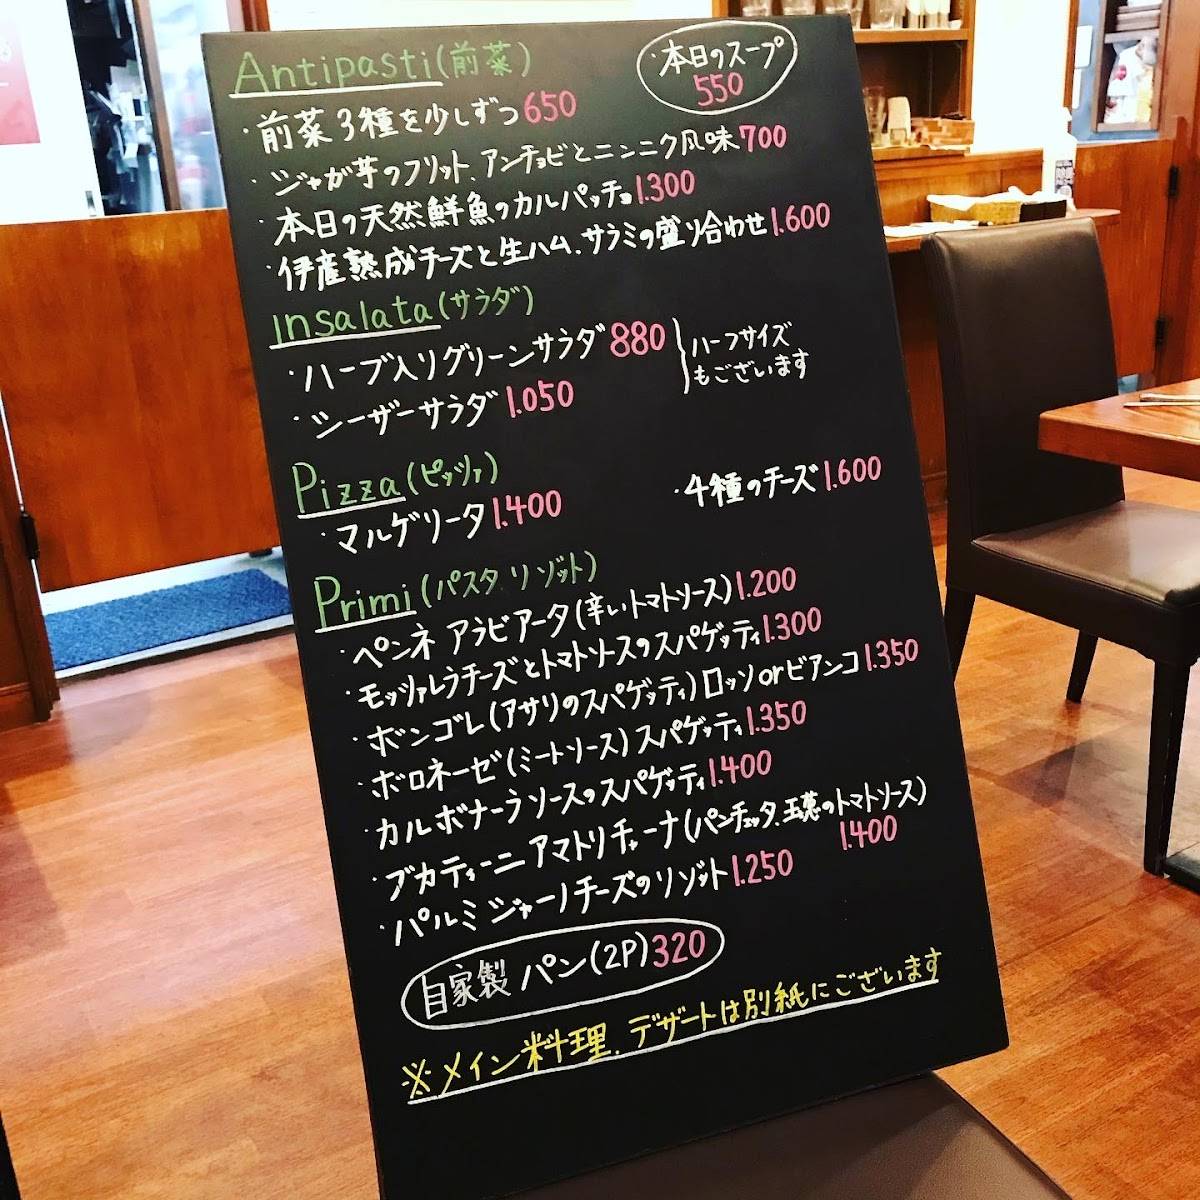 Antipasti(前菜)
本日のスープ
550
・前菜3種を少しずつ650
・ジャガ芋のフリット、アンチョビとニンニク風味700
・本日の天然鮮魚のカルパッチョ1.300
・伊産熟成チーズと生ハム、サラミの盛り合わせ1.600
insalata(サラダ)
・ハーブ入りグリーンサラダ880
・シーザーサラダ1.050
ハーフサイズ
もございます
Pizza(ピッツァ)
・マルゲリータ1.400
・4種のチーズ1.600
Primi(パスタ リゾット)
・ペンネ アラビアータ(辛いトマトソース)1.200
・モッツァレラチーズとトマトソースのスパゲッティ1.300
・ボンゴレ(アサリのスパゲッティ)ロッソorビアンコ1.350
・ボロネーゼ(ミートソース)スパゲッティ1.350
・カルボナーラソースのスパゲッティ1.400
・ブカティーニ アマトリチャーナ(パンチェッタ、玉葱のトマトソース)
1.400
・パルミジャーノチーズのリゾット1.250
自家製 パン(2P)320
※メイン料理、デザートは別紙にございます